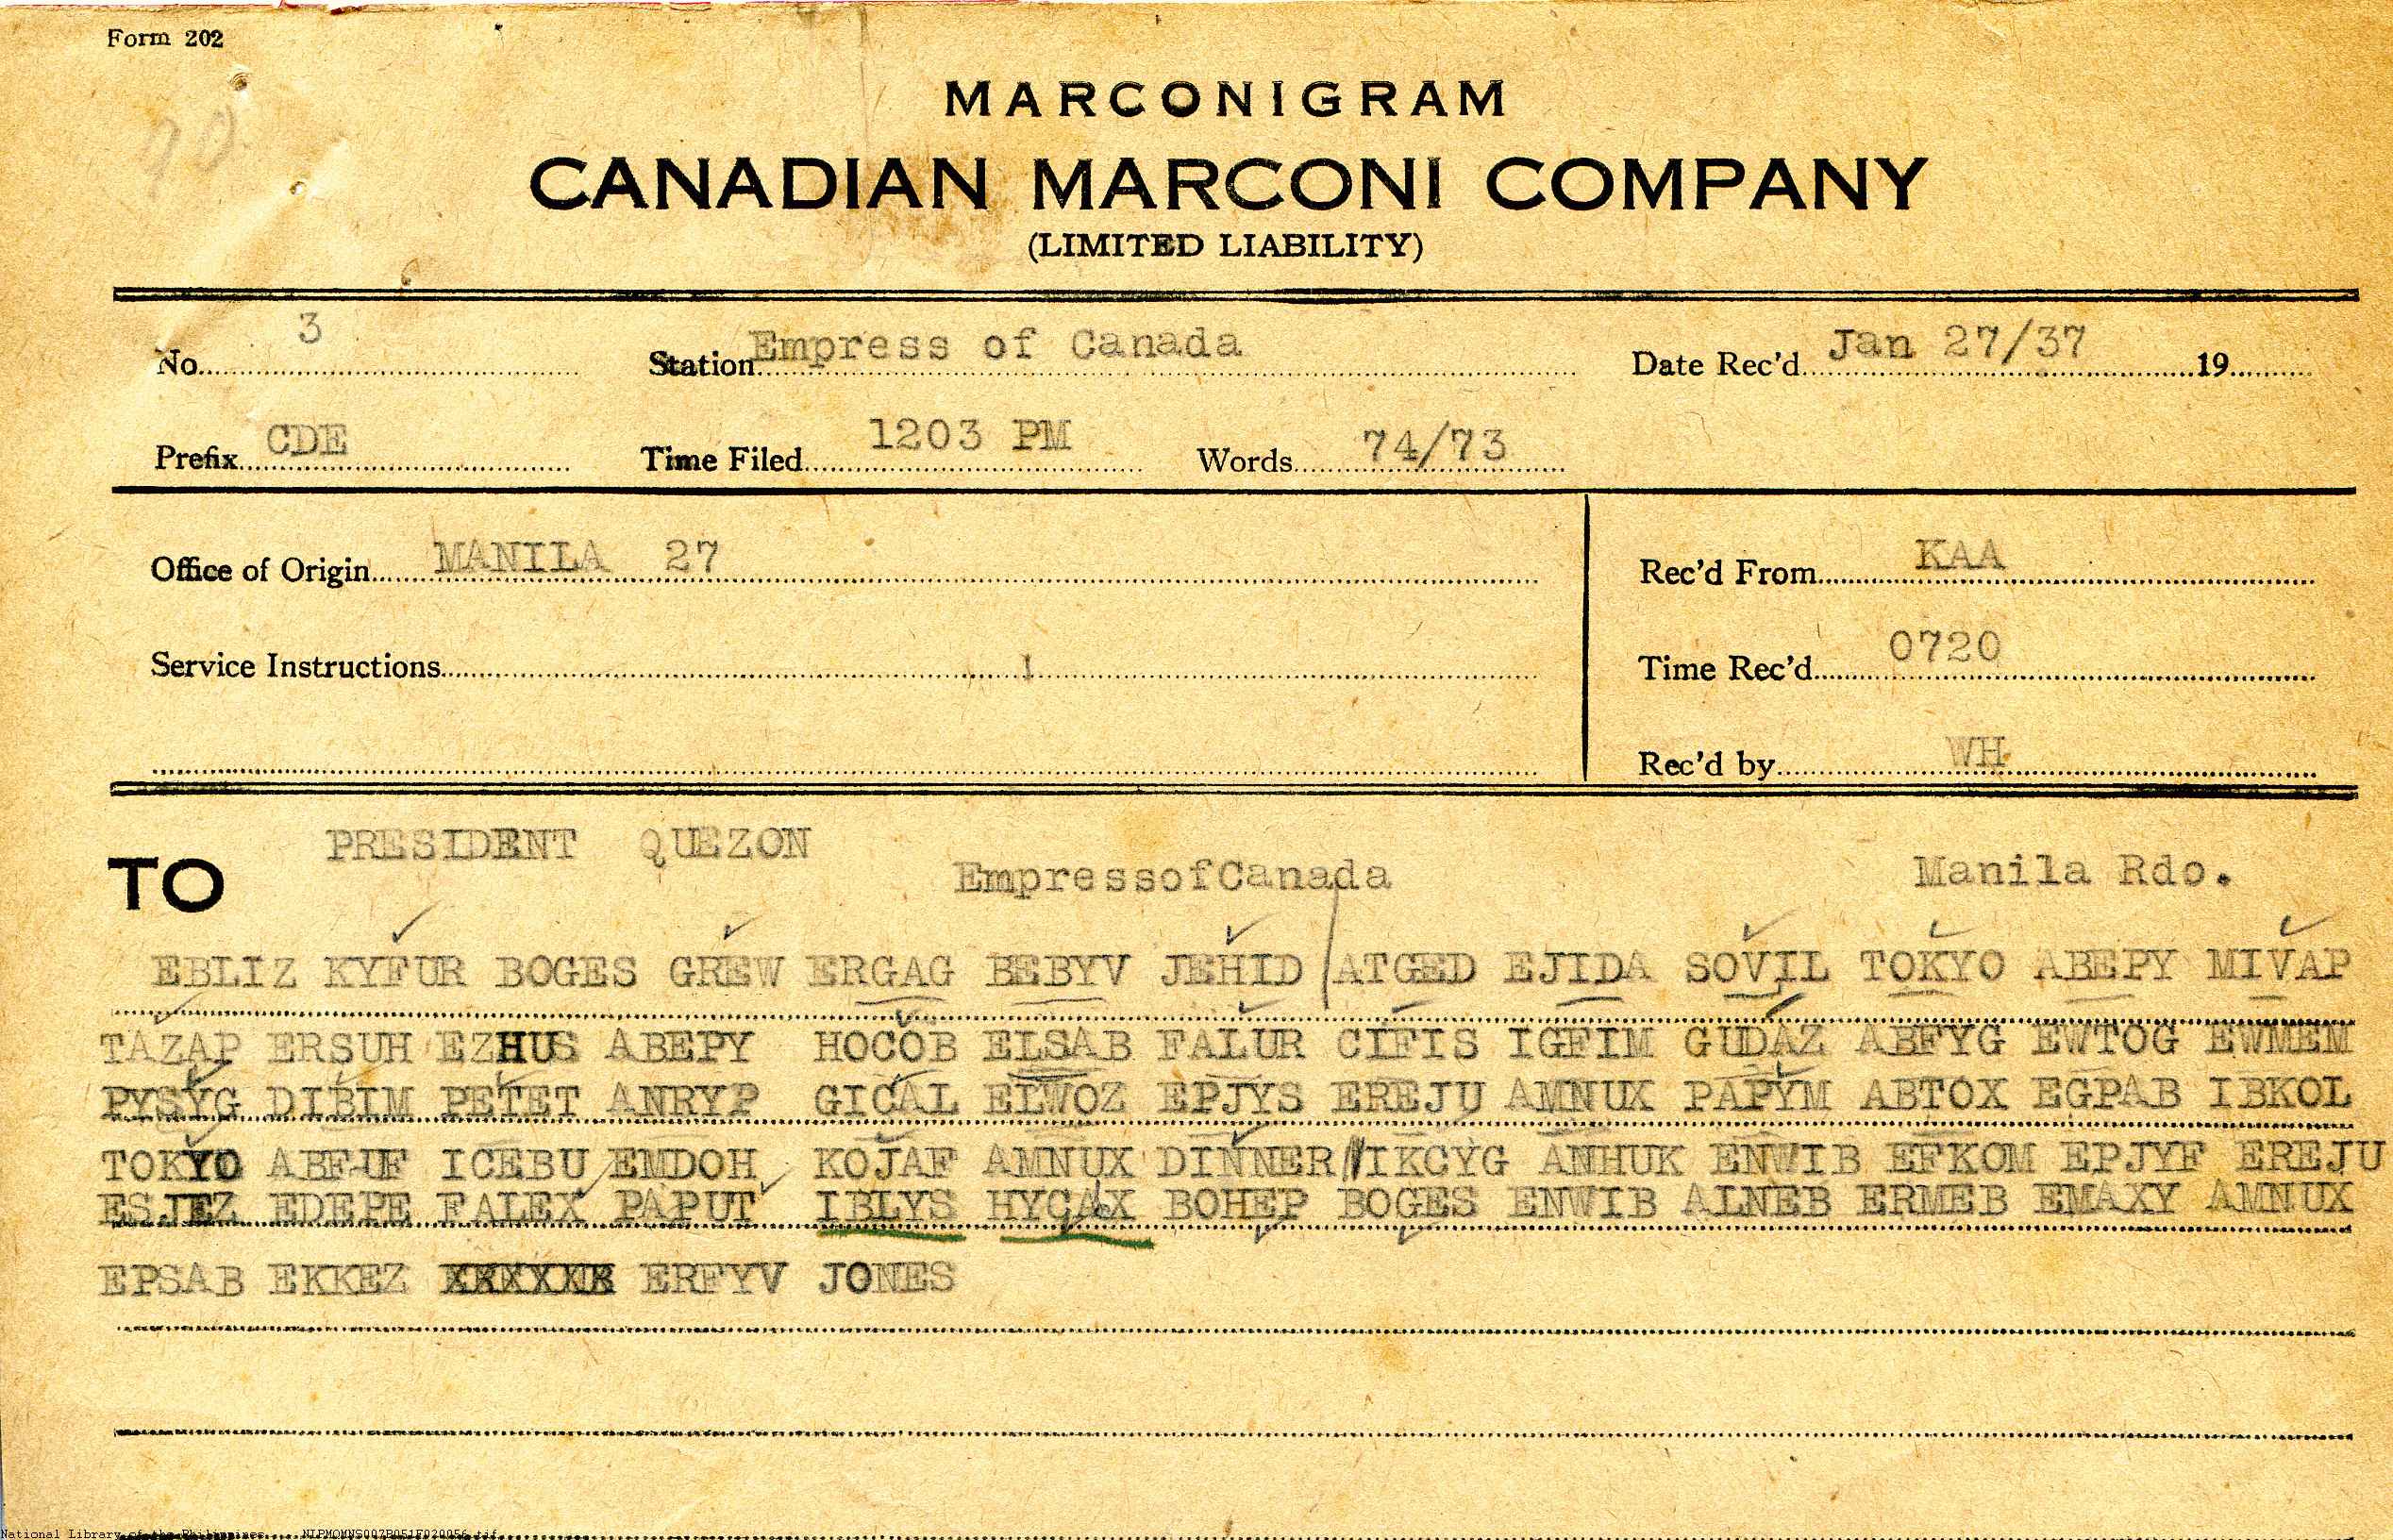 Form 202
MARCONIGRAM
CANADIAN MARCONI COMPANY
(LIMITED LIABILITY)
No. 3 Station Empress of Canada Date Rec'd Jan 27/37 19
Prefix CDE Time Filed 1203 PM Words 74/73
Office of Origin MANILA 27 Rec'd From KAA
Service Instructions Time Rec'd 0720
Rec'd by WH
TO PRESIDENT QUEZON EmpressofCanada Manila Rdo.
EBLIZ KYFUR BOGES GREW ERGAG BEBYV JEHID ATGED EJIDA SOVIL TOKYO ABEPY MIVAP
TAZAP ERSUH EZHUS ABEPY HOCOB ELSAB FALUR CIFIS IGFIM GUDAZ ABFYG EWTOG EWMEM
PYSYG DIBIM PETET ANRYP GICAL ELWOZ EPJYS EREJU AMNUX PAPYM ABTOX EGPAB IBKOL
TOKYO ABFUF ICEBU EMDOH KOJAF AMNUX DINNER IKCYG ANHUK ENWIB EFKOM EPJYF EREJU
ESJEZ EDEPE FALEX PAPUT IBLYS HYCAX BOHEP BOGES ENWIB ALNEB ERMEB EMAXY AMNUX
EPSAB EKKEZ ERFYV JONES
National Library of the Philippines NLPMQMNS007B051F020056.tif